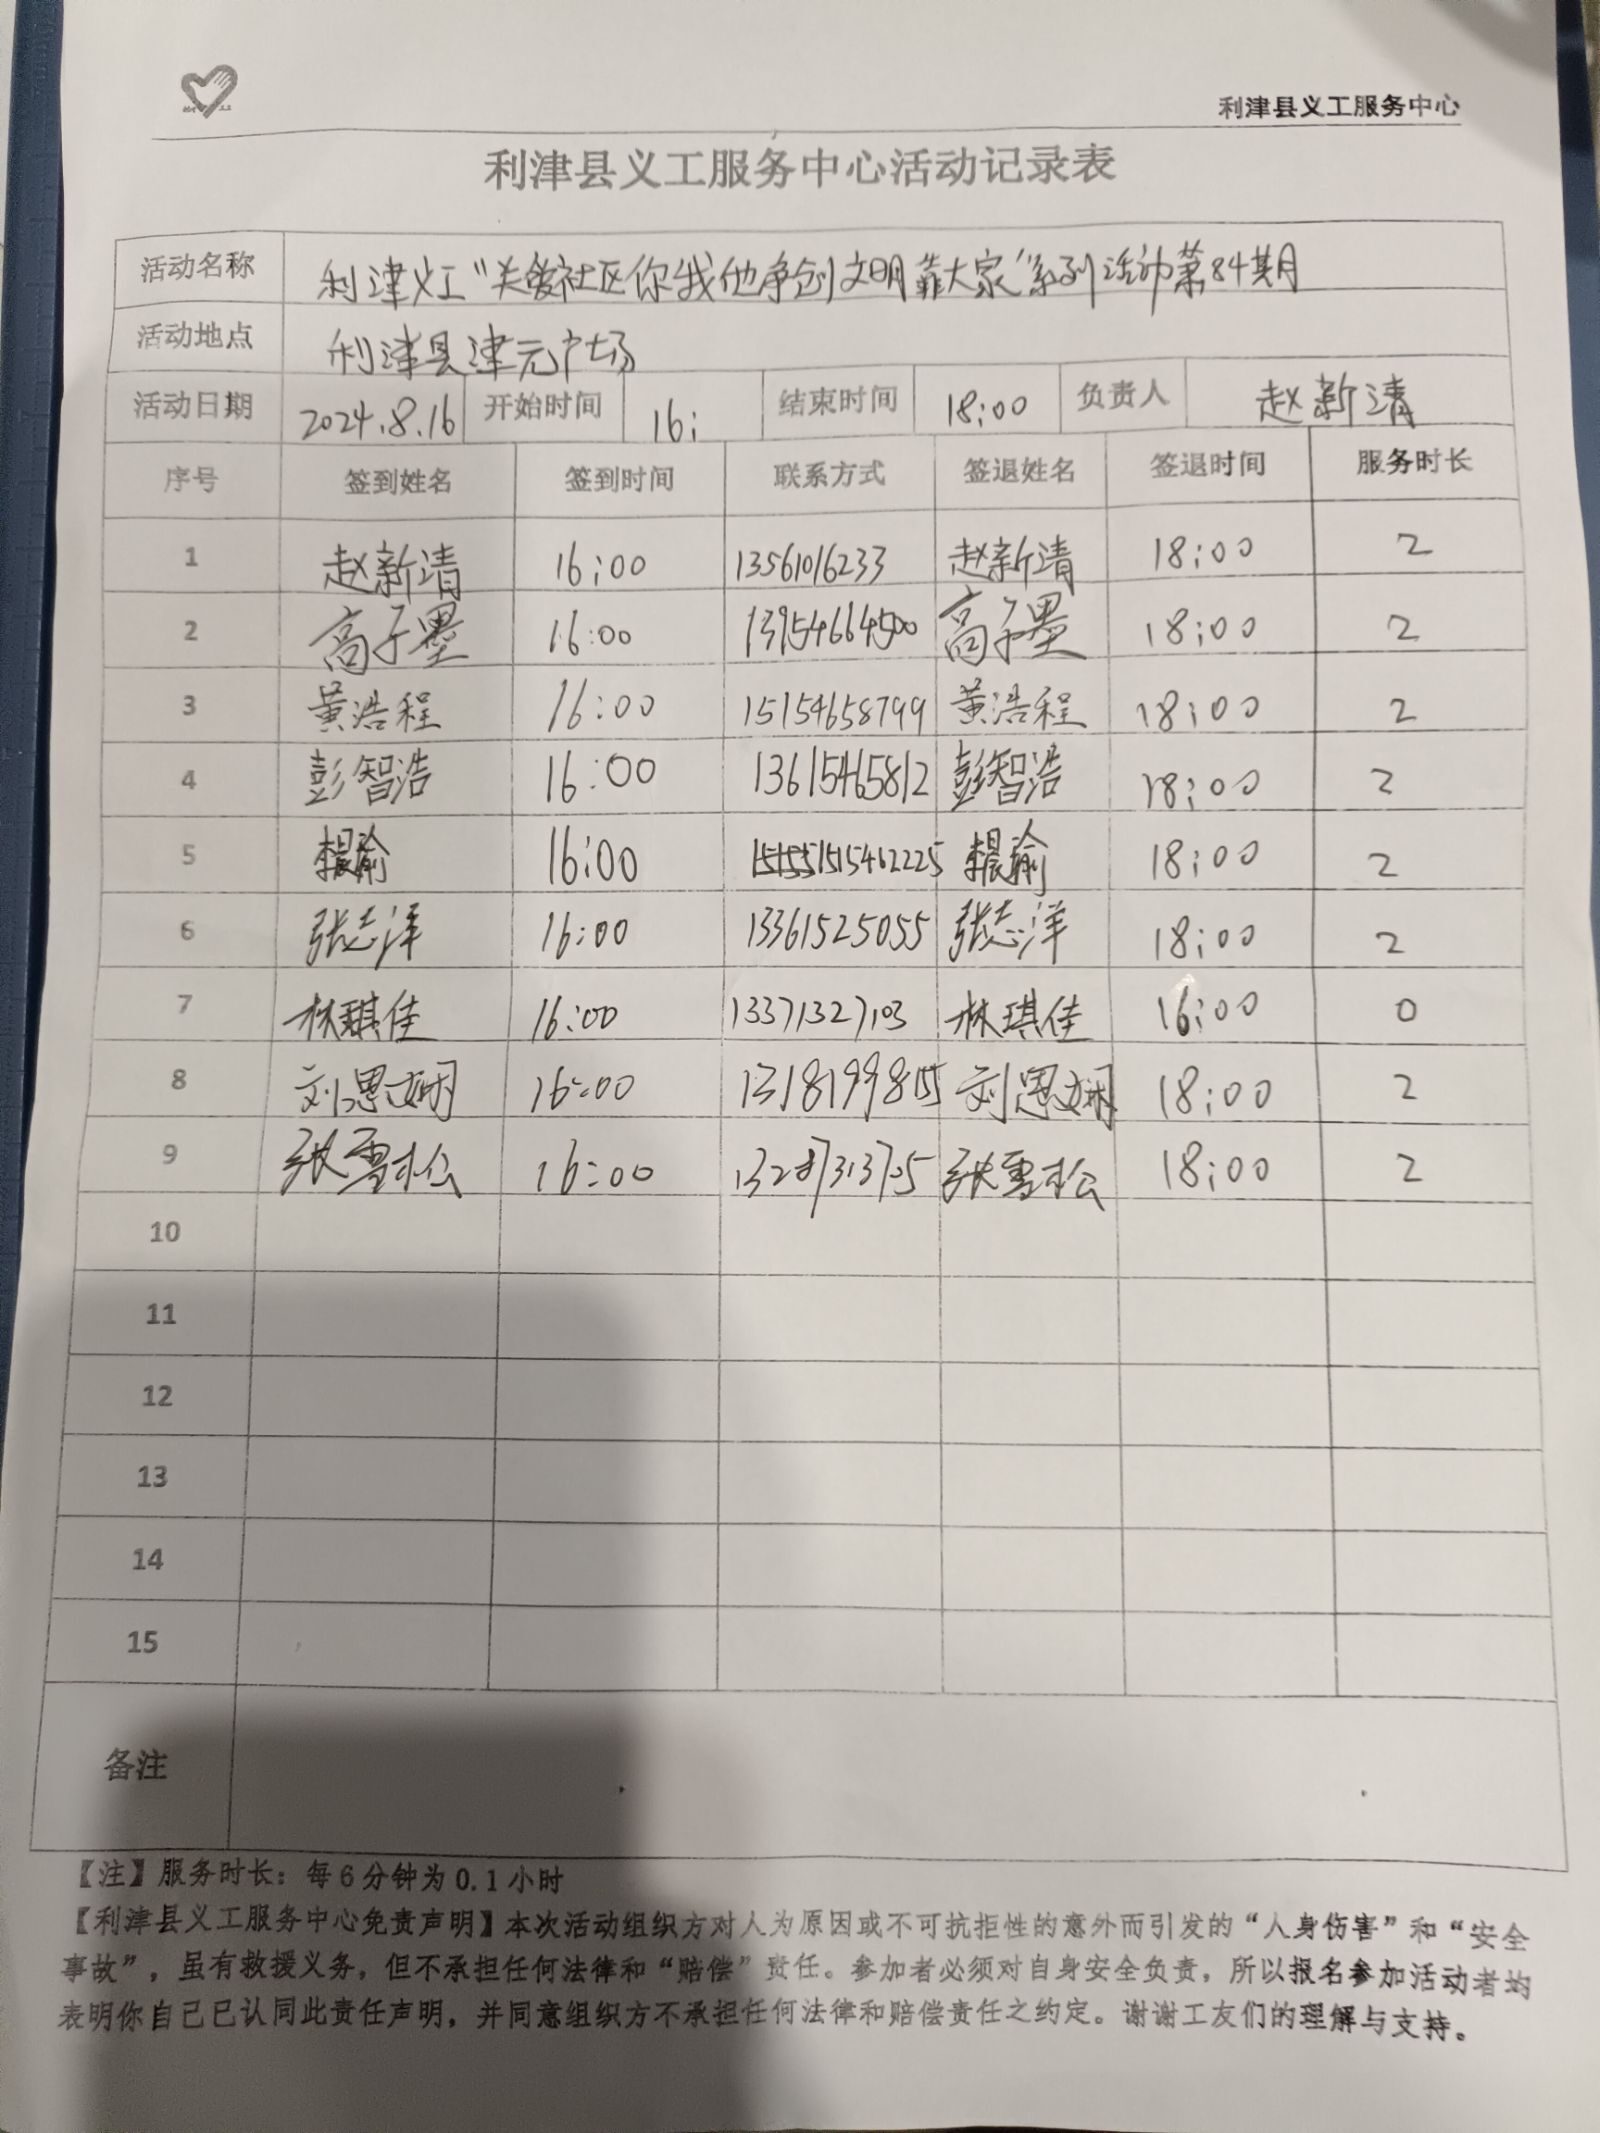 利津县义工服务中心
利津县义工服务中心活动记录表
活动名称 利津义工“关爱社区你我他争创文明靠大家”系列活动第84期
活动地点 利津县津元广场
活动日期 2024.8.16 开始时间 16: 结束时间 18:00 负责人 赵新清
序号 签到姓名 签到时间 联系方式 签退姓名 签退时间 服务时长
1 赵新清 16:00 13561016233 赵新清 18:00 2
2 高子墨 16:00 13954664500 高子墨 18:00 2
3 黄浩程 16:00 15154658799 黄浩程 18:00 2
4 彭智浩 16:00 13615465812 彭智浩 18:00 2
5 16:00 18:00 2
6 张志洋 16:00 13361525055 张志洋 18:00 2
7 林琪佳 16:00 13371327103 林琪佳 16:00 0
8 刘恩娴 16:00 刘恩娴 18:00 2
9 张雪松 16:00 张雪松 18:00 2
10
11
12
13
14
15
备注
【注】服务时长：每6分钟为0.1小时
【利津县义工服务中心免责声明】本次活动组织方对人为原因或不可抗拒性的意外而引发的“人身伤害”和“安全
事故”，虽有救援义务，但不承担任何法律和“赔偿”责任。参加者必须对自身安全负责，所以报名参加活动者均
表明你自己已认同此责任声明，并同意组织方不承担任何法律和赔偿责任之约定。谢谢工友们的理解与支持。